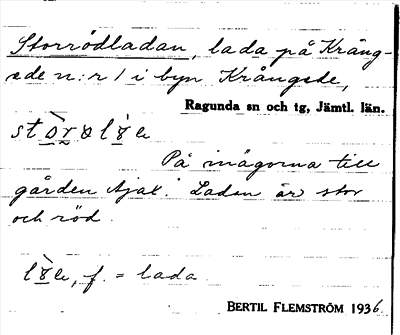 Storrödladan, lada på Krång-
ede n:r 1 i byn Krångede,
Ragunda sn och tg, Jämtl. län.
På inägorna till
gården Ajax. Ladan är stor
och röd.
f. = lada
BERTIL FLEMSTRÖM 1936.